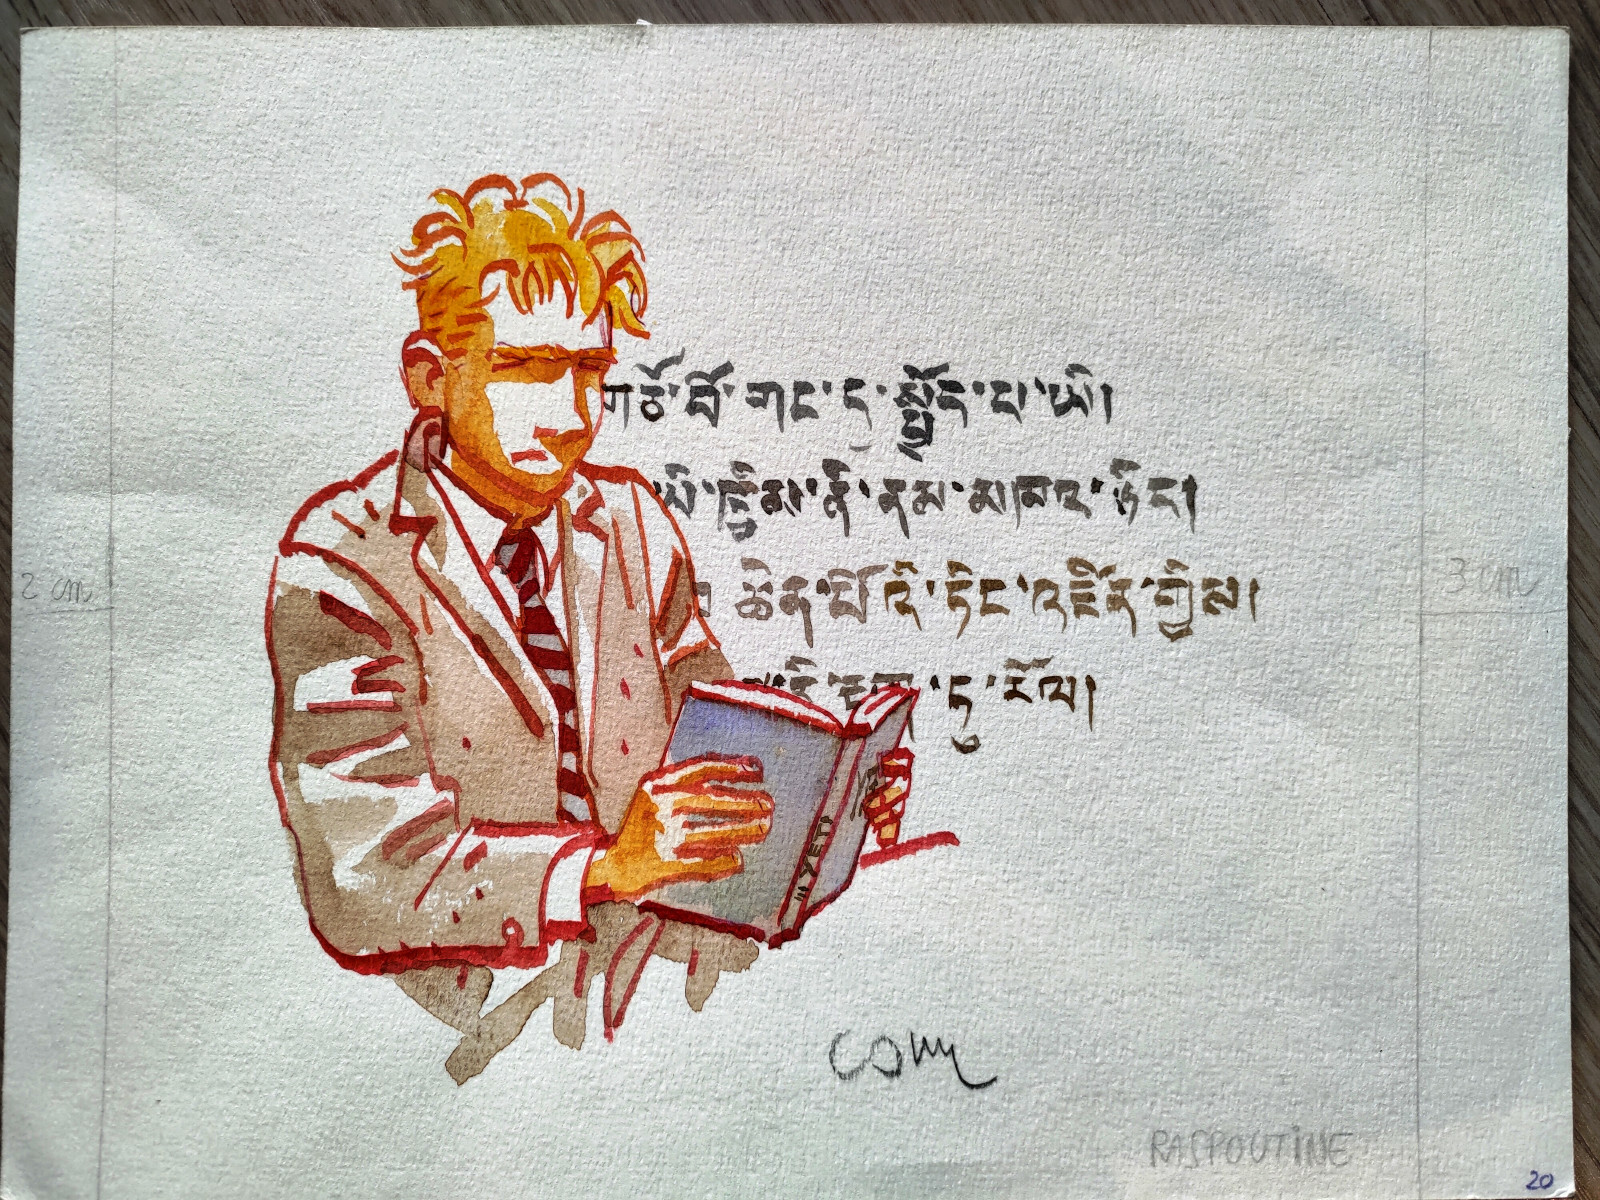 གཙོ་བོ་གང་ད་སྤྱོད་པ་ཡི།
ཁྲིམས་ནི་ནམ་མཁའ་ཉིད།
2 cm
3 cm
ཆེན་པོའི་ཏིང་འཛིན་གྱིས།
དུ་རོལ།
YETI
RASPOUTINE
20